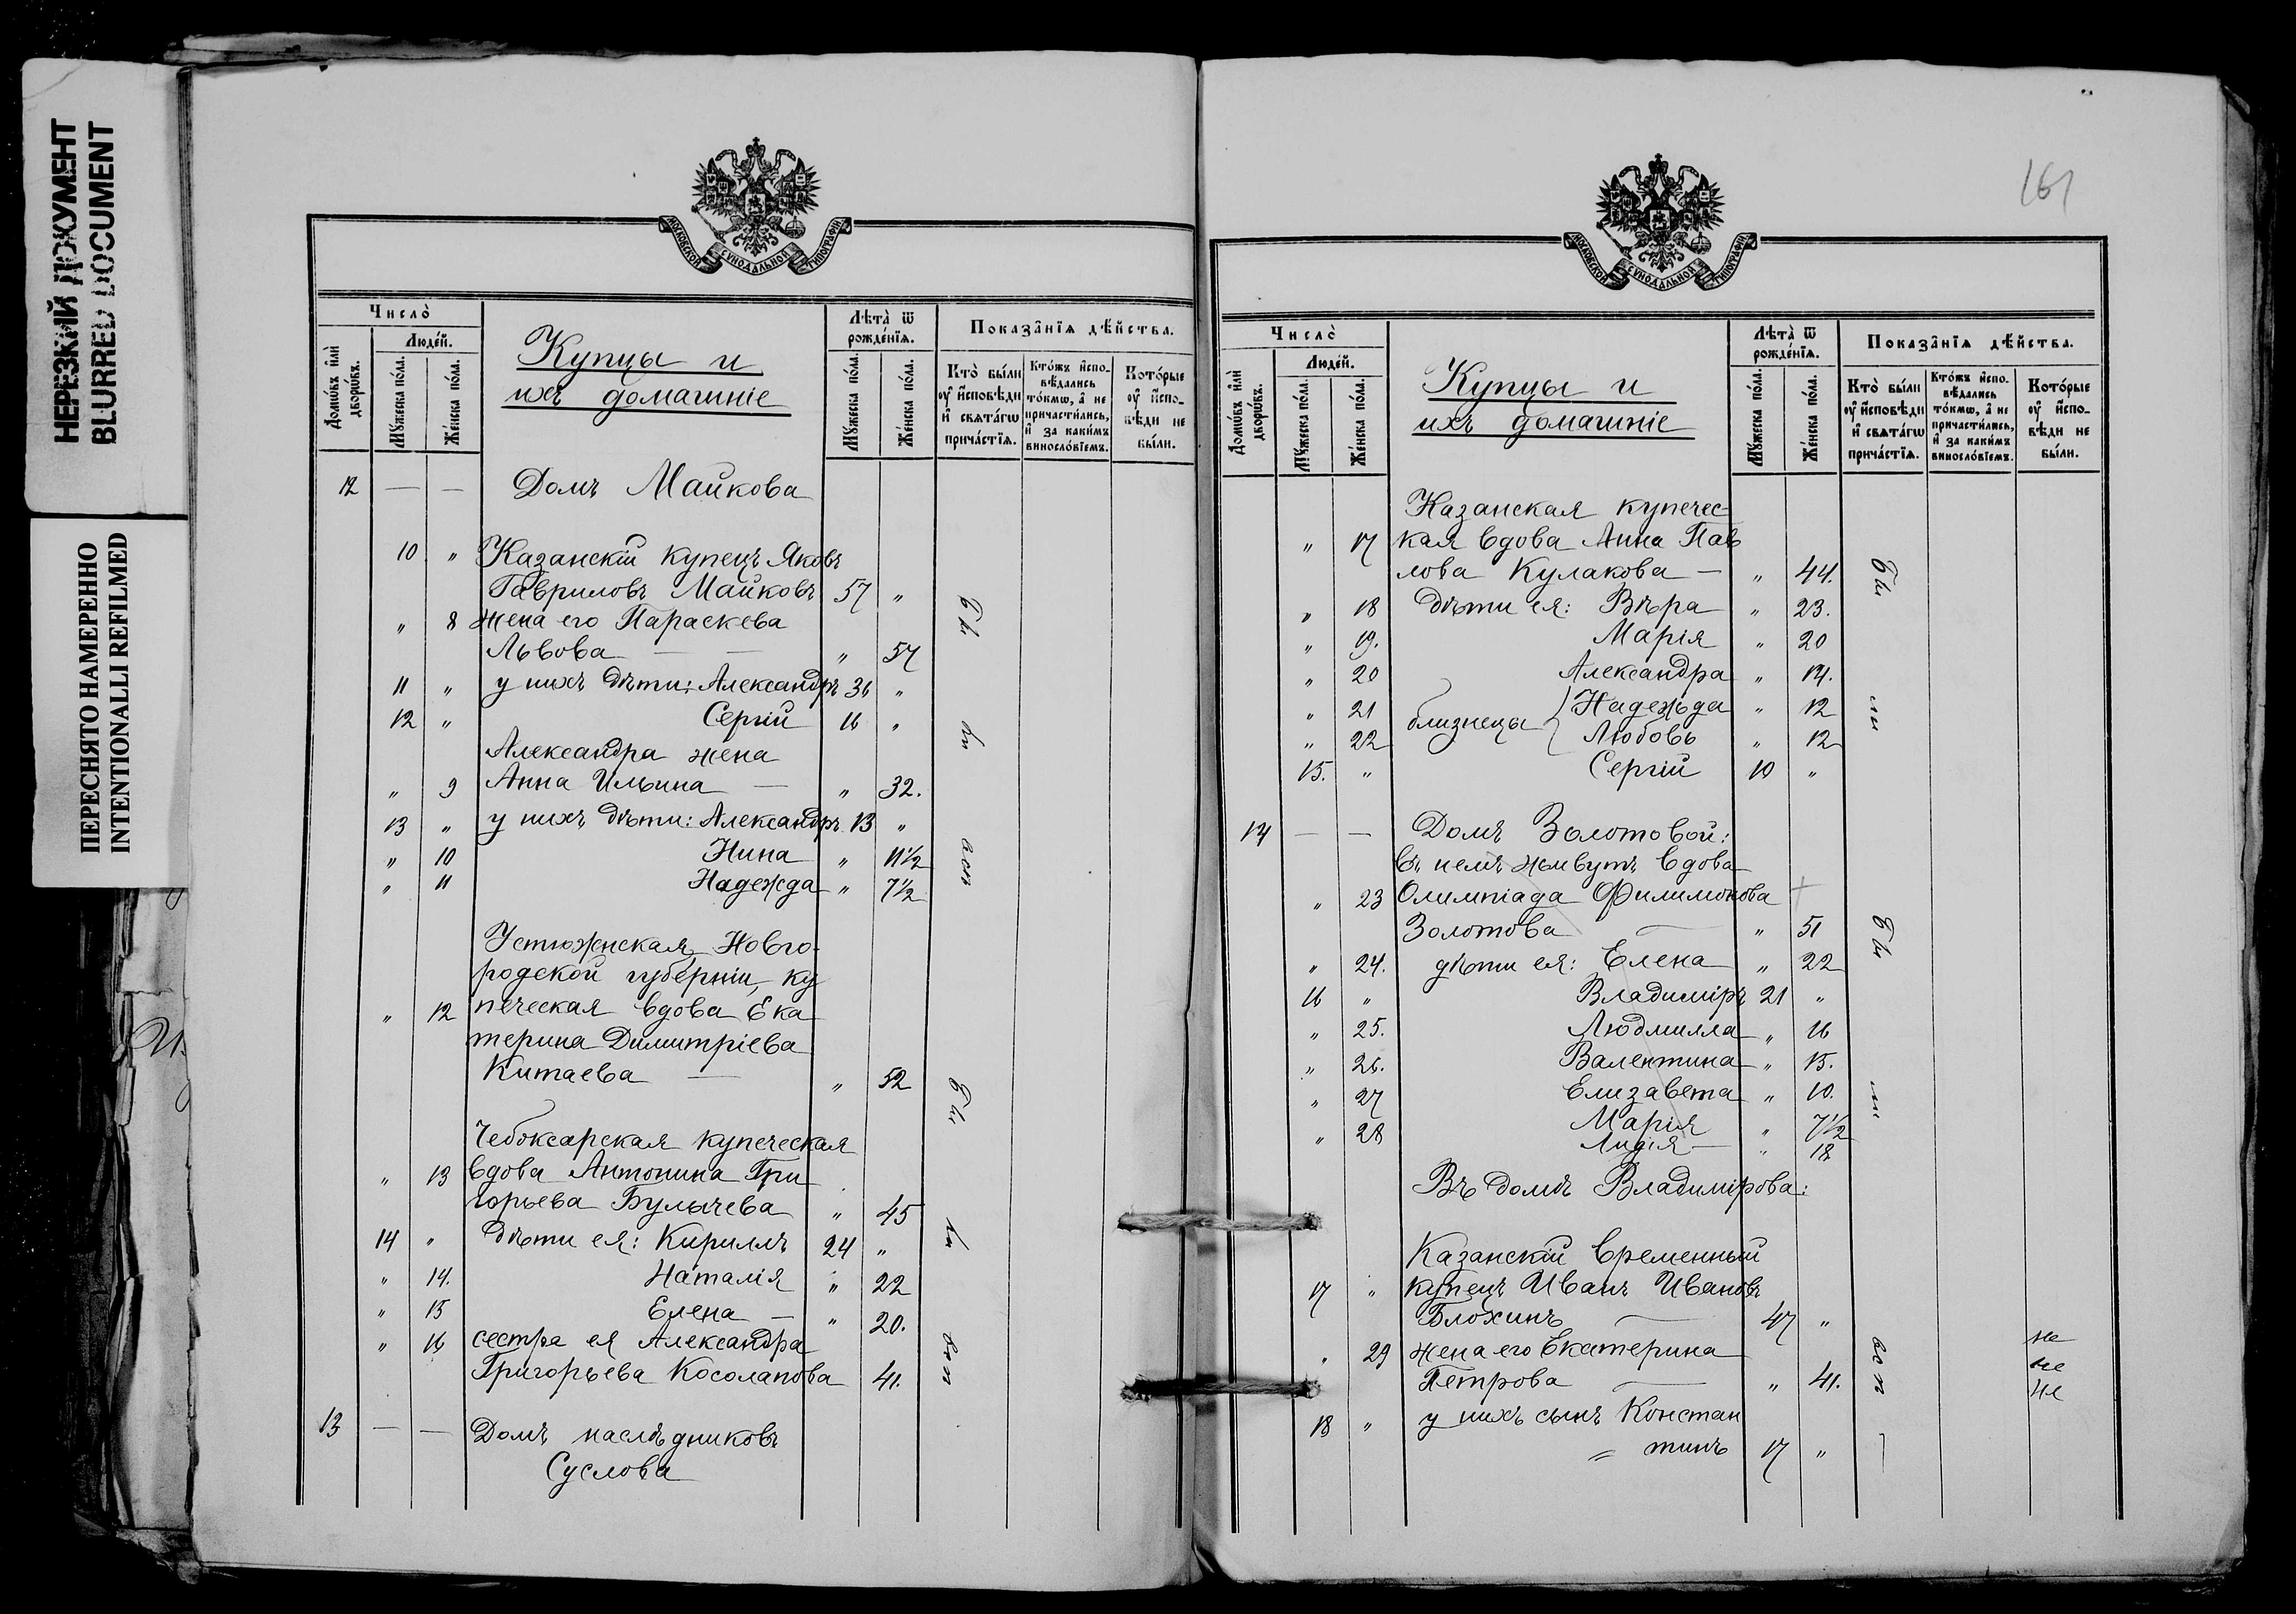 НЕРЕЗКИЙ ДОКУМЕНТ
BLURRED DOCUMENT
ПЕРЕСНЯТО НАМЕРЕННО
INTENTIONALLI REFILMED
МОСКОВСКОЙ СУНОДАЛЬНОЙ ТИПОГРАФІИ
Число̀
Домѡвъ и҆лѝ дворѡвъ.
Люде́й.
Мꙋ́жеска по́ла.
Же́нска по́ла.
Купцы и
ихъ домашніе
Лѣ́та ѿ рожде́нїѧ.
Мꙋ́жеска по́ла.
Же́нска по́ла.
Показа̑нїѧ дѣ́йства.
Кто̀ бы́ли ᲂу҆ и҆сповѣ́ди и҆ свѧта́гѡ прича́стїѧ.
Кто́жъ и҆спо-вѣ́дались то́кмѡ, а҆ не причасти́лись, и҆ за каки́мъ виносло́вїемъ.
Кото́рые ᲂу҆ и҆спо-вѣ́ди не бы́ли.
12 — — Домъ Майкова
10 " Казанскій купецъ Яковъ
Гавриловъ Майковъ 57 "
" 8 жена его Параскева
Львова — — " 57
11 " у нихъ дѣти: Александръ 36 "
12 " Сергій 16 "
Александра жена
" 9 Анна Ильина — " 32.
13 " у нихъ дѣти: Александръ 13 "
" 10 Нина " 11½
" 11 Надежда " 7½
Устюженская, Новго-
родской губерніи, ку
" 12 печеская вдова Ека
терина Димитріева
Китаева — " 52
Чебоксарская купеческая
" 13 вдова Антонина Гри
горьева Булычева " 45
14 " дѣти ея: Кириллъ 24 "
" 14. Наталія " 22
" 15 Елена — " 20.
" 16 сестра ея Александра
Григорьева Косолапова 41.
13 — — Домъ наслѣдниковъ
Суслова
161
МОСКОВСКОЙ СУНОДАЛЬНОЙ ТИПОГРАФІИ
Число̀
Домѡвъ и҆лѝ дворѡвъ.
Люде́й.
Мꙋ́жеска по́ла.
Же́нска по́ла.
Купцы и
ихъ домашніе
Лѣ́та ѿ рожде́нїѧ.
Мꙋ́жеска по́ла.
Же́нска по́ла.
Показа̑нїѧ дѣ́йства.
Кто̀ бы́ли ᲂу҆ и҆сповѣ́ди и҆ свѧта́гѡ прича́стїѧ.
Кто́жъ и҆спо-вѣ́дались то́кмѡ, а҆ не причасти́лись, и҆ за каки́мъ виносло́вїемъ.
Кото́рые ᲂу҆ и҆спо-вѣ́ди не бы́ли.
Казанская купечес-
" 17 кая вдова Анна Пав
лова Кулакова — " 44.
" 18 дѣти ея: Вѣра " 23.
" 19. Марія " 20
" 20 Александра " 14.
" 21 близнецы { Надежда " 12
" 22 Любовь " 12
15. " Сергій 10 "
14 — — Домъ Золотовой:
въ немъ живутъ вдова
" 23 Олимпіада Филимонова +
Золотова — " 51
" 24. дѣти ея: Елена " 22
16 " Владиміръ 21 "
" 25. Людмилла " 16
" 26. Валентина " 15.
" 27 Елизавета " 10.
" 28 Марія " 7½
Лидія — " 18
Въ домѣ Владимірова:
Казанскій временный
17 " купецъ Иванъ Ивановъ
Блохинъ — 47 "
" 29 жена его Екатерина не
Петрова — " 41. не
не
18 " у нихъ сынъ Констан
= тинъ 17 "